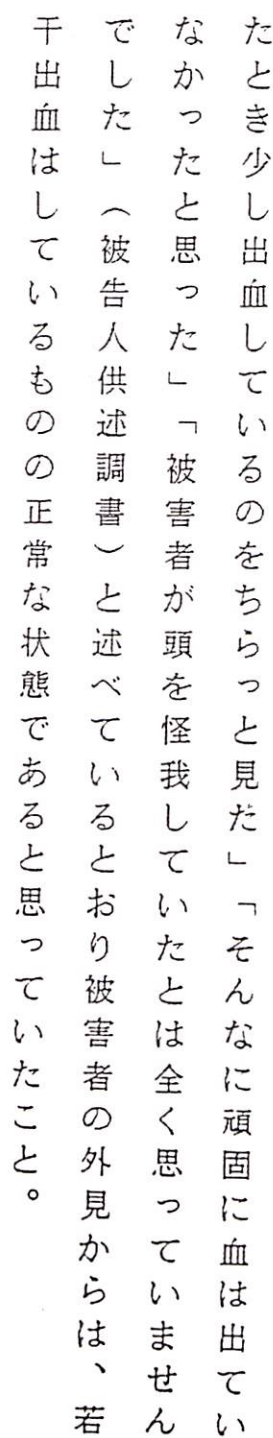 たとき少し出血しているのをちらっと見だ」「そんなに頑固に血は出てい
なかったと思った」「被害者が頭を怪我していたとは全く思っていません
でした」（被告人供述調書）と述べているとおり被害者の外見からは、若
干出血はしているものの正常な状態であると思っていたこと。